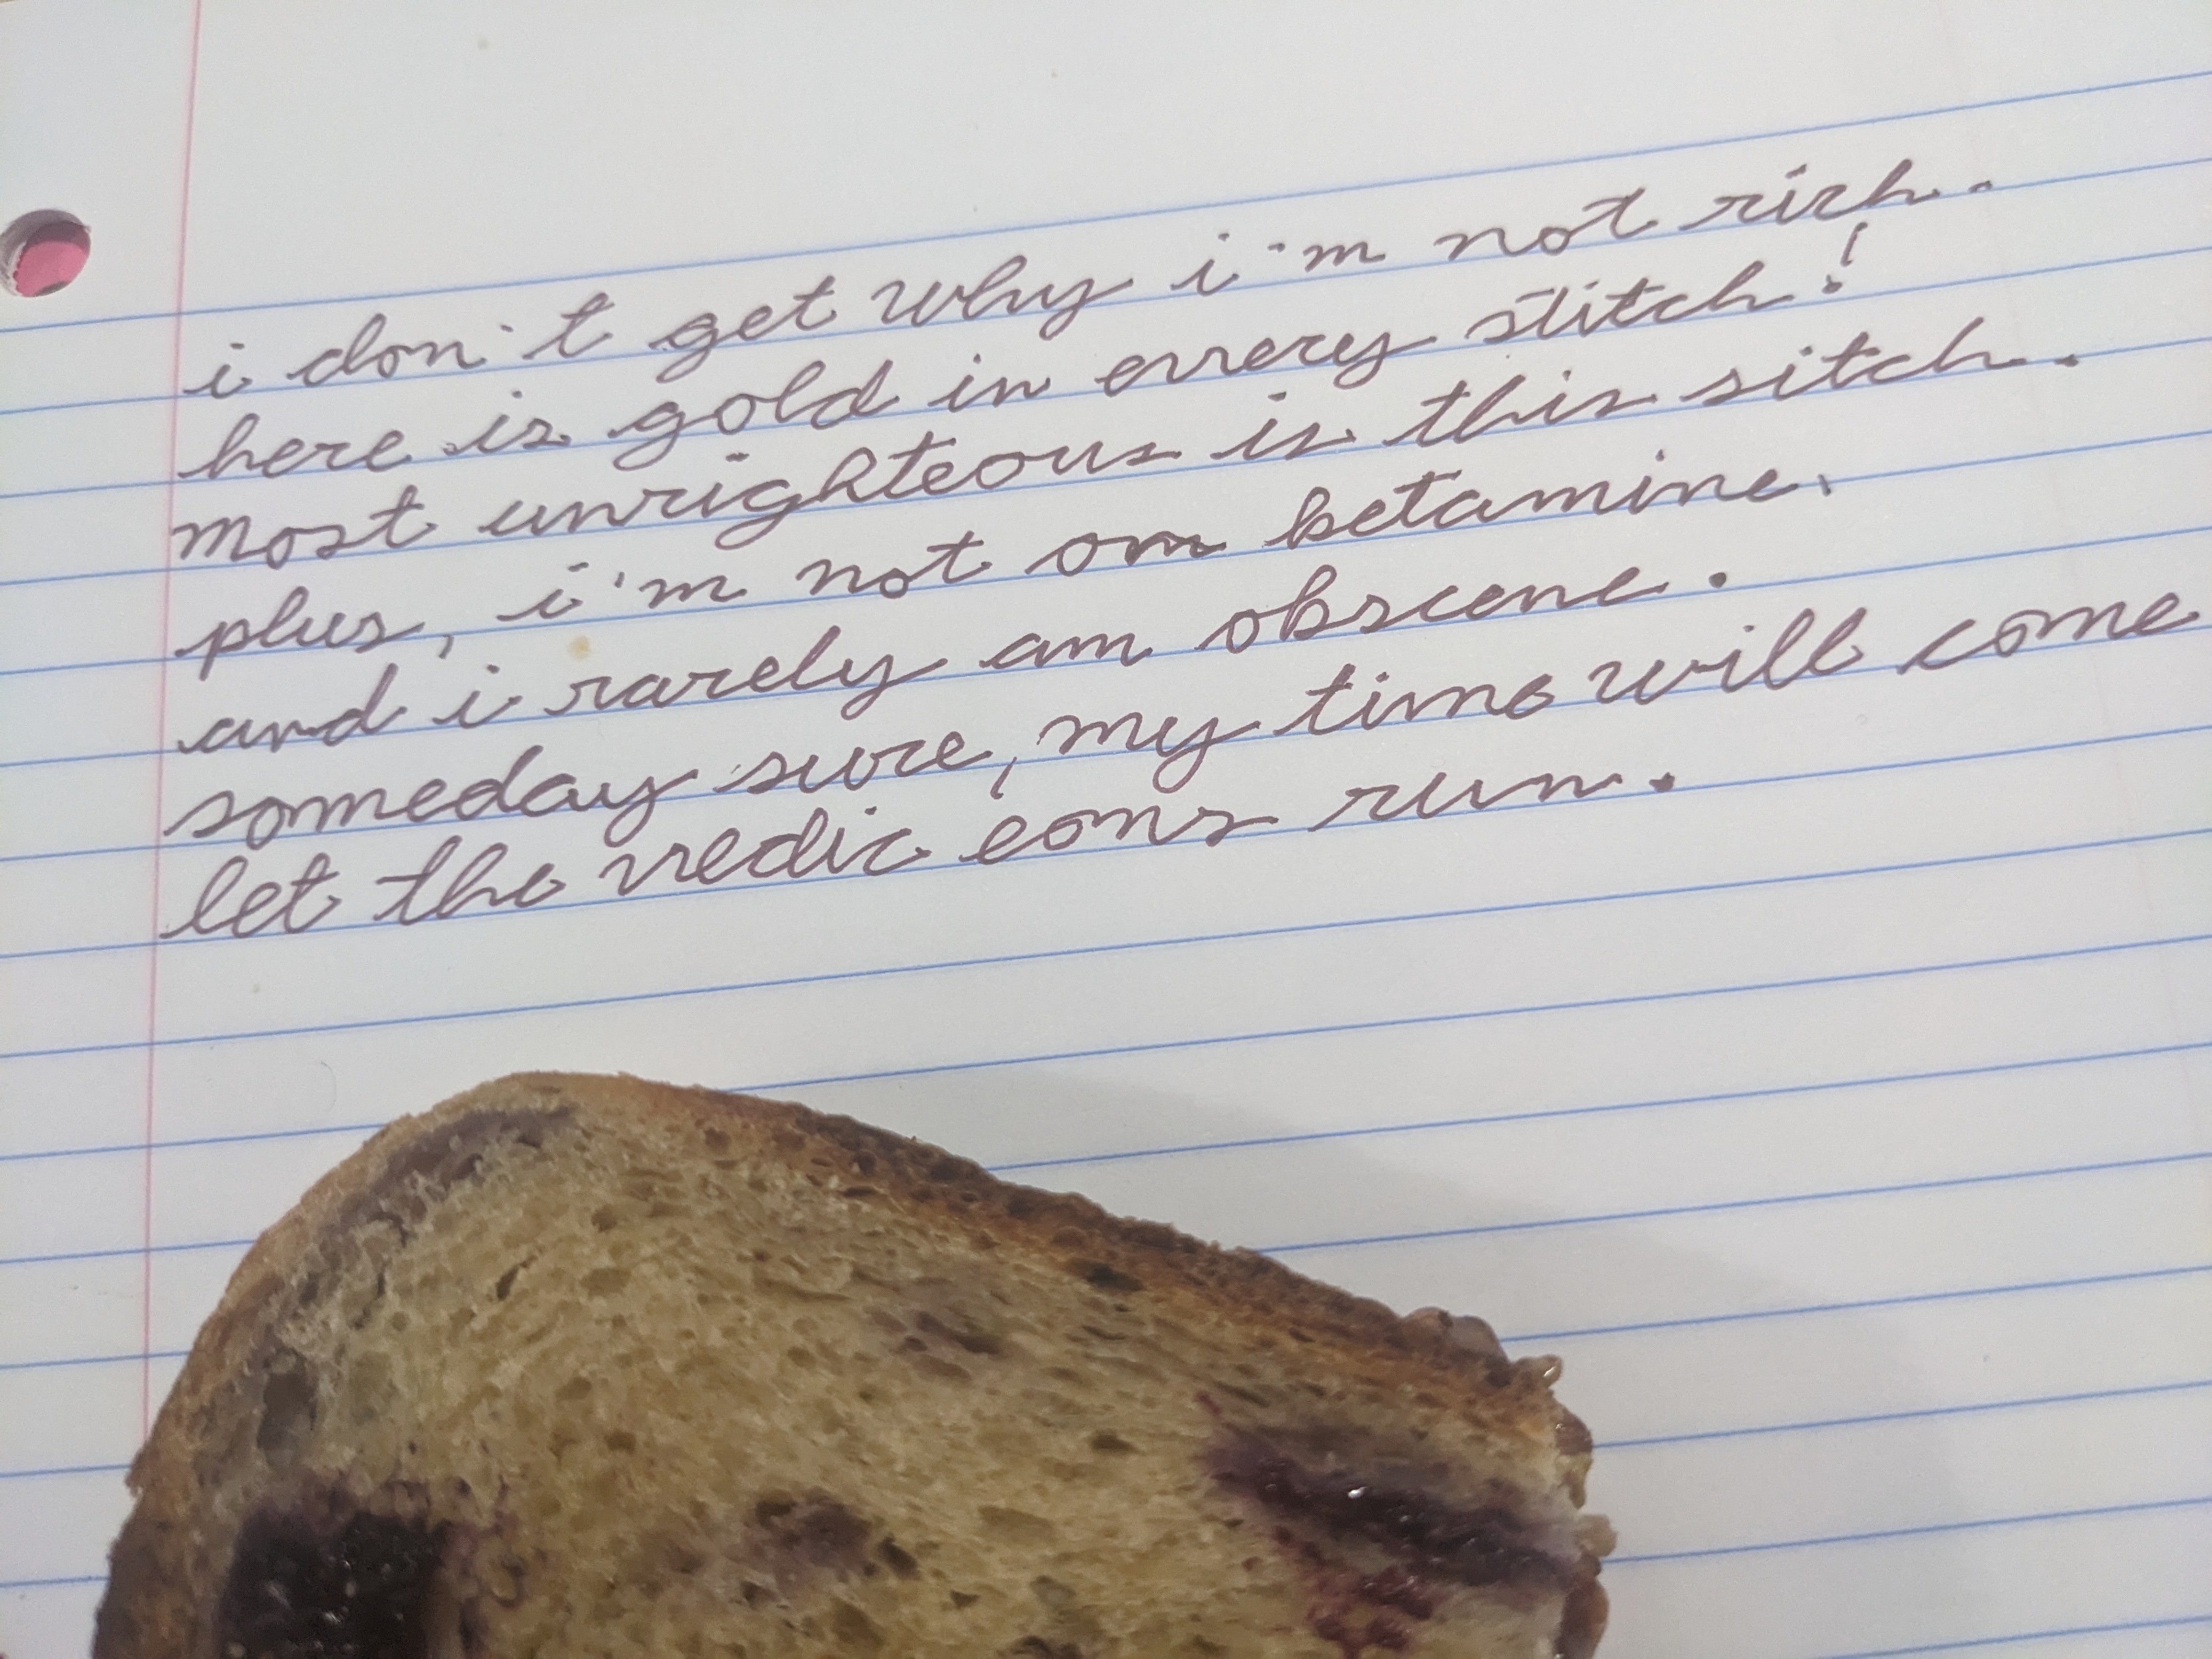 i don't get why i'm not rich.
here is gold in every stitch!
most unrighteous is this sitch.
plus, i'm not on ketamine.
and i rarely am obscene.
someday sure, my time will come
let the vedic eons run.